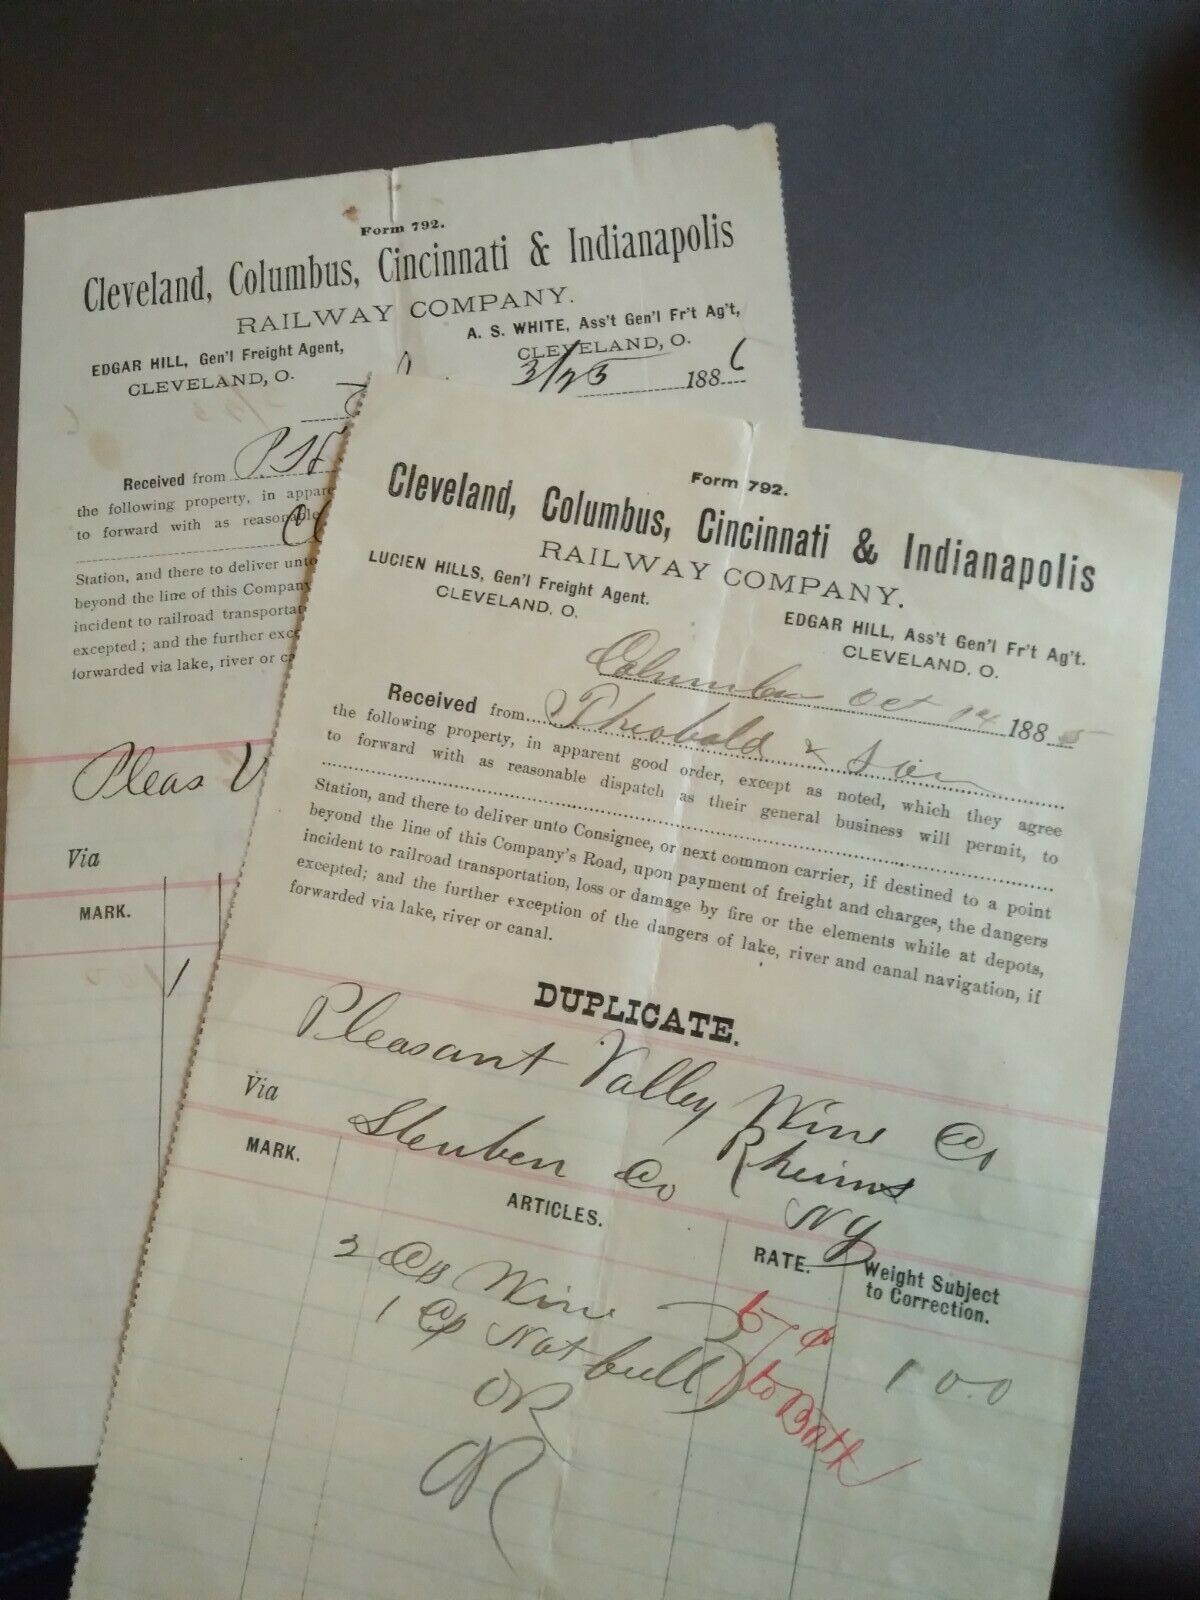 Form 792.
Cleveland, Columbus, Cincinnati & Indianapolis
RAILWAY COMPANY.
EDGAR HILL, Gen'l Freight Agent,
CLEVELAND, O.
A. S. WHITE, Ass't Gen'l Fr't Ag't,
CLEVELAND, O.
3/23 1886
Received from P. H
the following property, in appare
to forward with as reasonable
Station, and there to deliver unto
beyond the line of this Company
incident to railroad transportat
excepted; and the further exce
forwarded via lake, river or ca
Pleas V
Via
MARK.
1
Form 792.
Cleveland, Columbus, Cincinnati & Indianapolis
RAILWAY COMPANY.
LUCIEN HILLS, Gen'l Freight Agent.
CLEVELAND, O.
EDGAR HILL, Ass't Gen'l Fr't Ag't.
CLEVELAND, O.
Columbus Oct 14 1885
Received from Theobold & Son
the following property, in apparent good order, except as noted, which they agree
to forward with as reasonable dispatch as their general business will permit, to
Station, and there to deliver unto Consignee, or next common carrier, if destined to a point
beyond the line of this Company's Road, upon payment of freight and charges, the dangers
incident to railroad transportation, loss or damage by fire or the elements while at depots,
excepted; and the further exception of the dangers of lake, river and canal navigation, if
forwarded via lake, river or canal.
DUPLICATE.
Pleasant Valley Wine Co
Rheims
Via Steuben Co NY
MARK. ARTICLES. RATE. Weight Subject
to Correction.
2 Wine
1 100
to Bath
OR